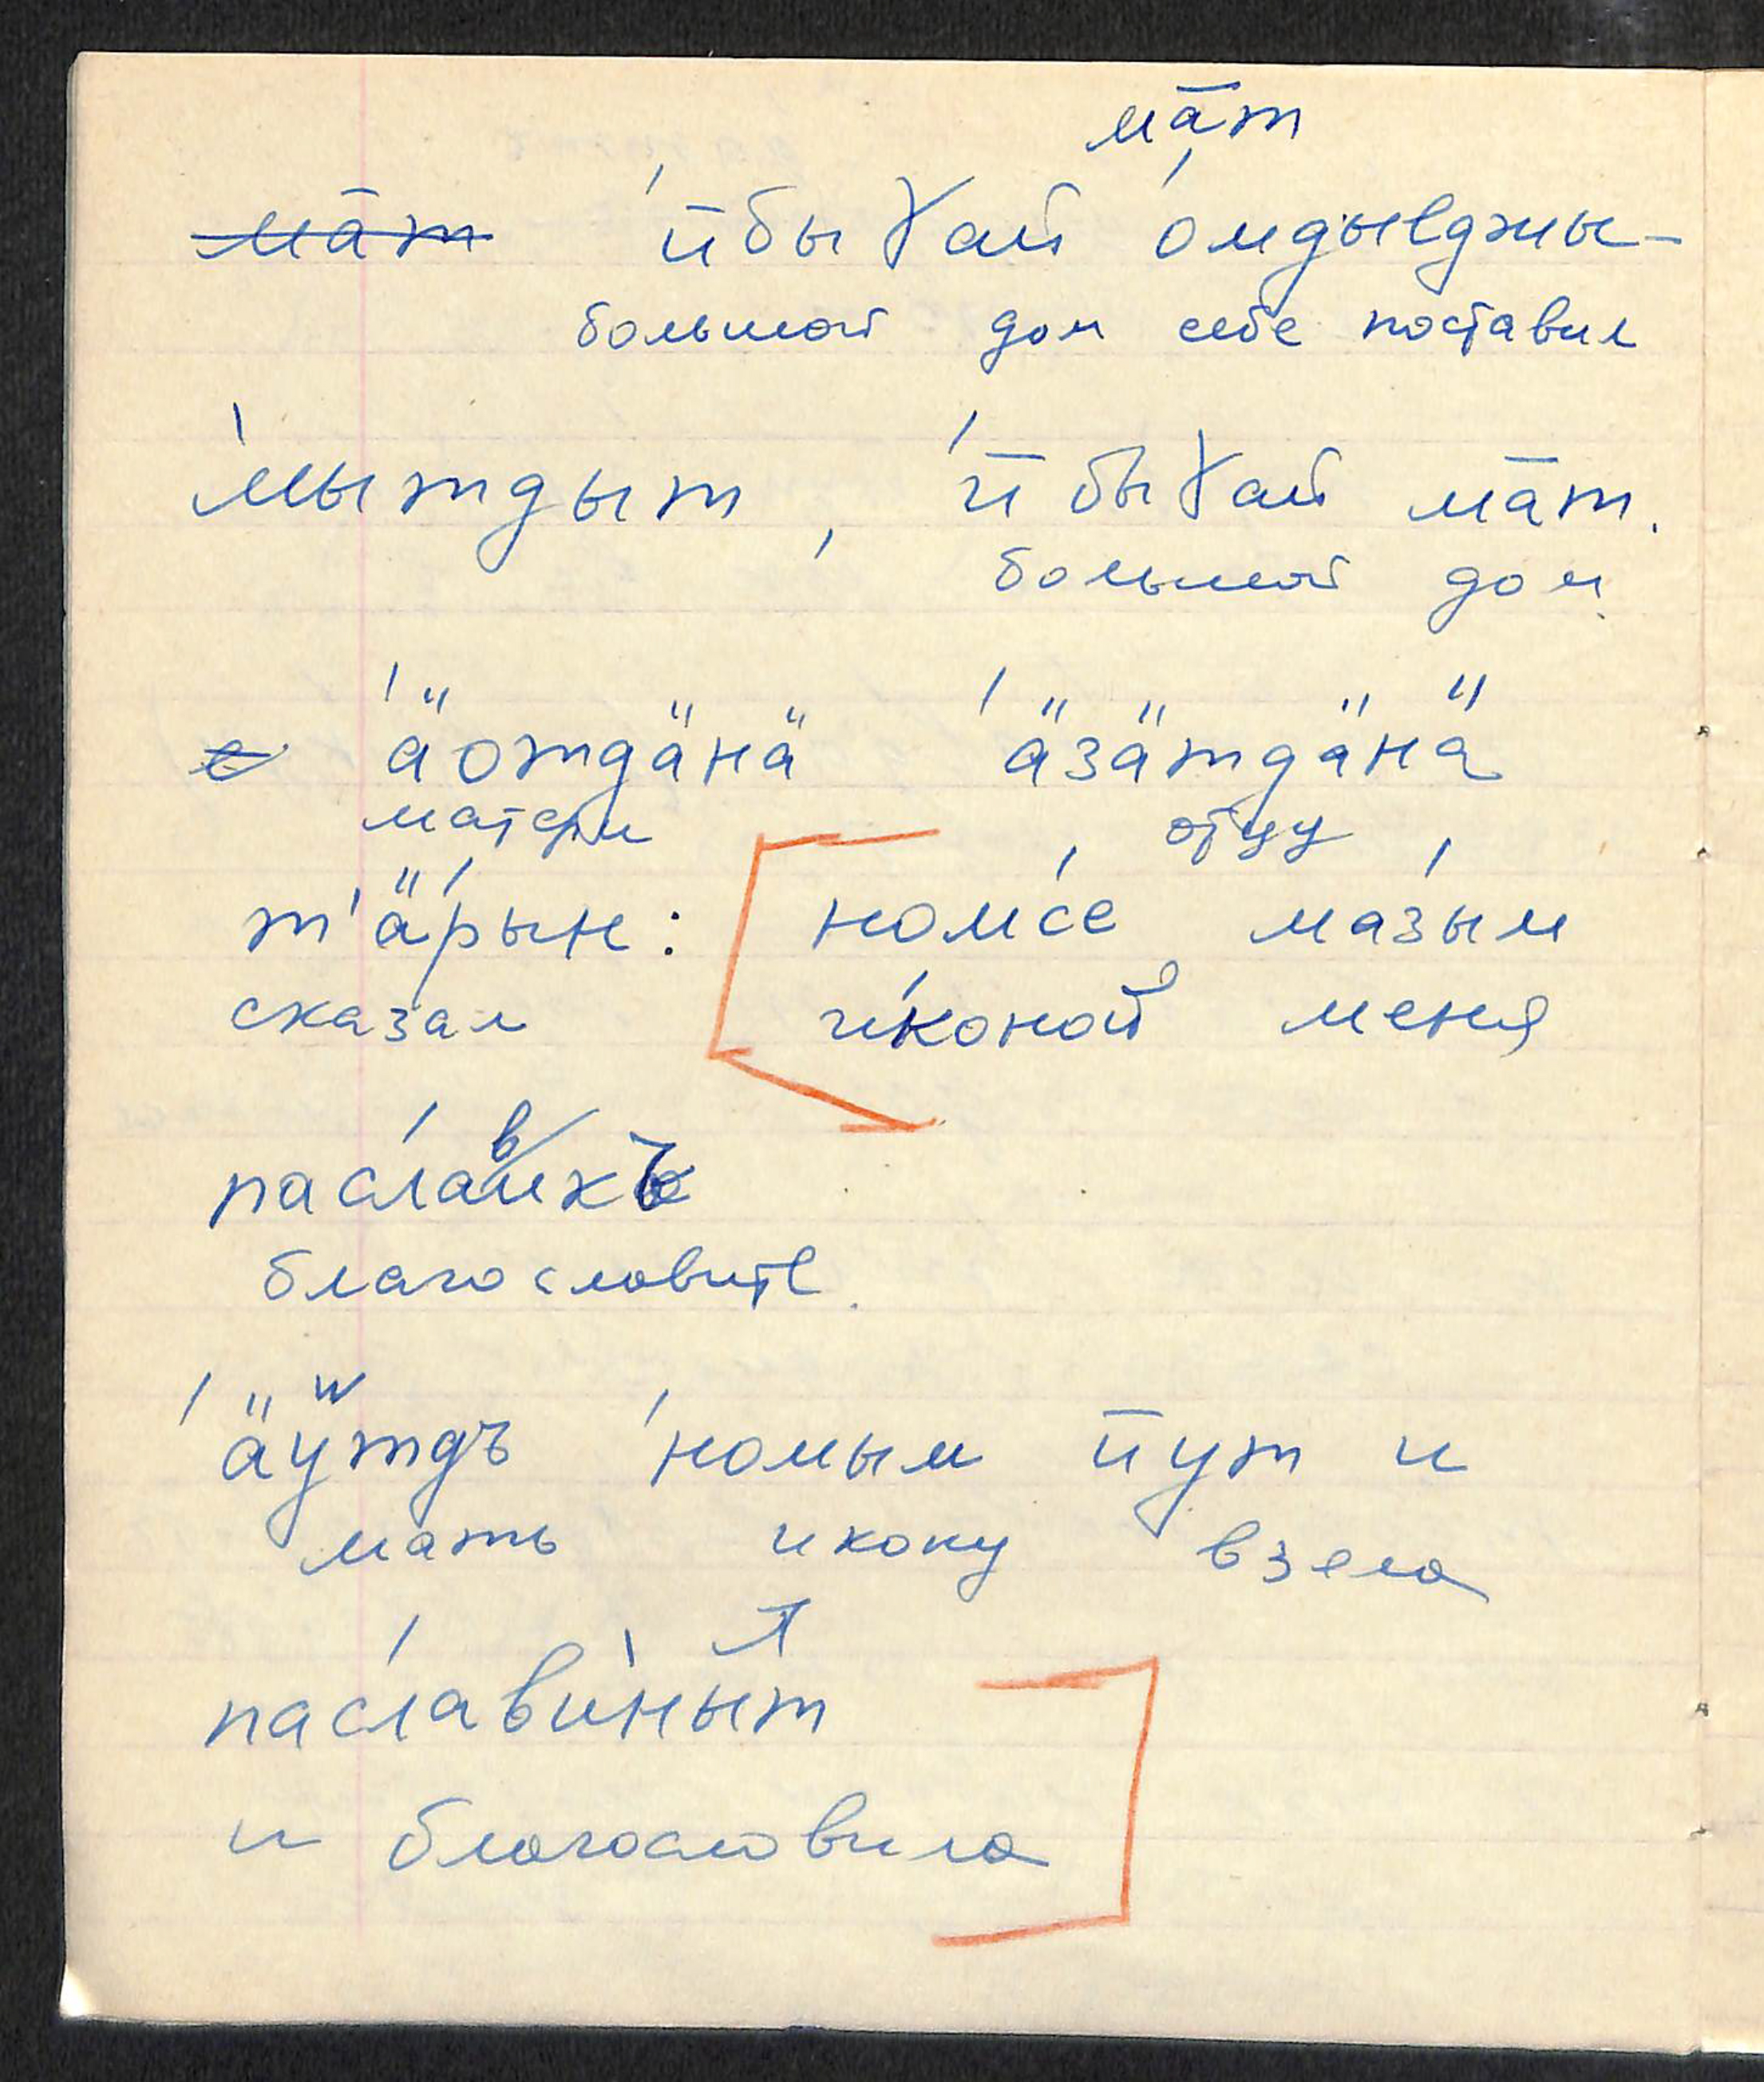 ма̄т
ма̄т 'ӣбыɣай 'омдылджы-
большой дом себе поставил
'мытдыт, 'ӣбыɣай ма̄т.
большой дом.
'ӓотдӓнӓ 'ӓзӓтдӓнӓ
матери отцу
т'ӓ́рын: ном́се ма́зым
сказал иконой меня
па́славикъ
благословите.
'ӓӱтдъ 'номым ӣут и
мать икону взела
па́слави́ныт
и благословила